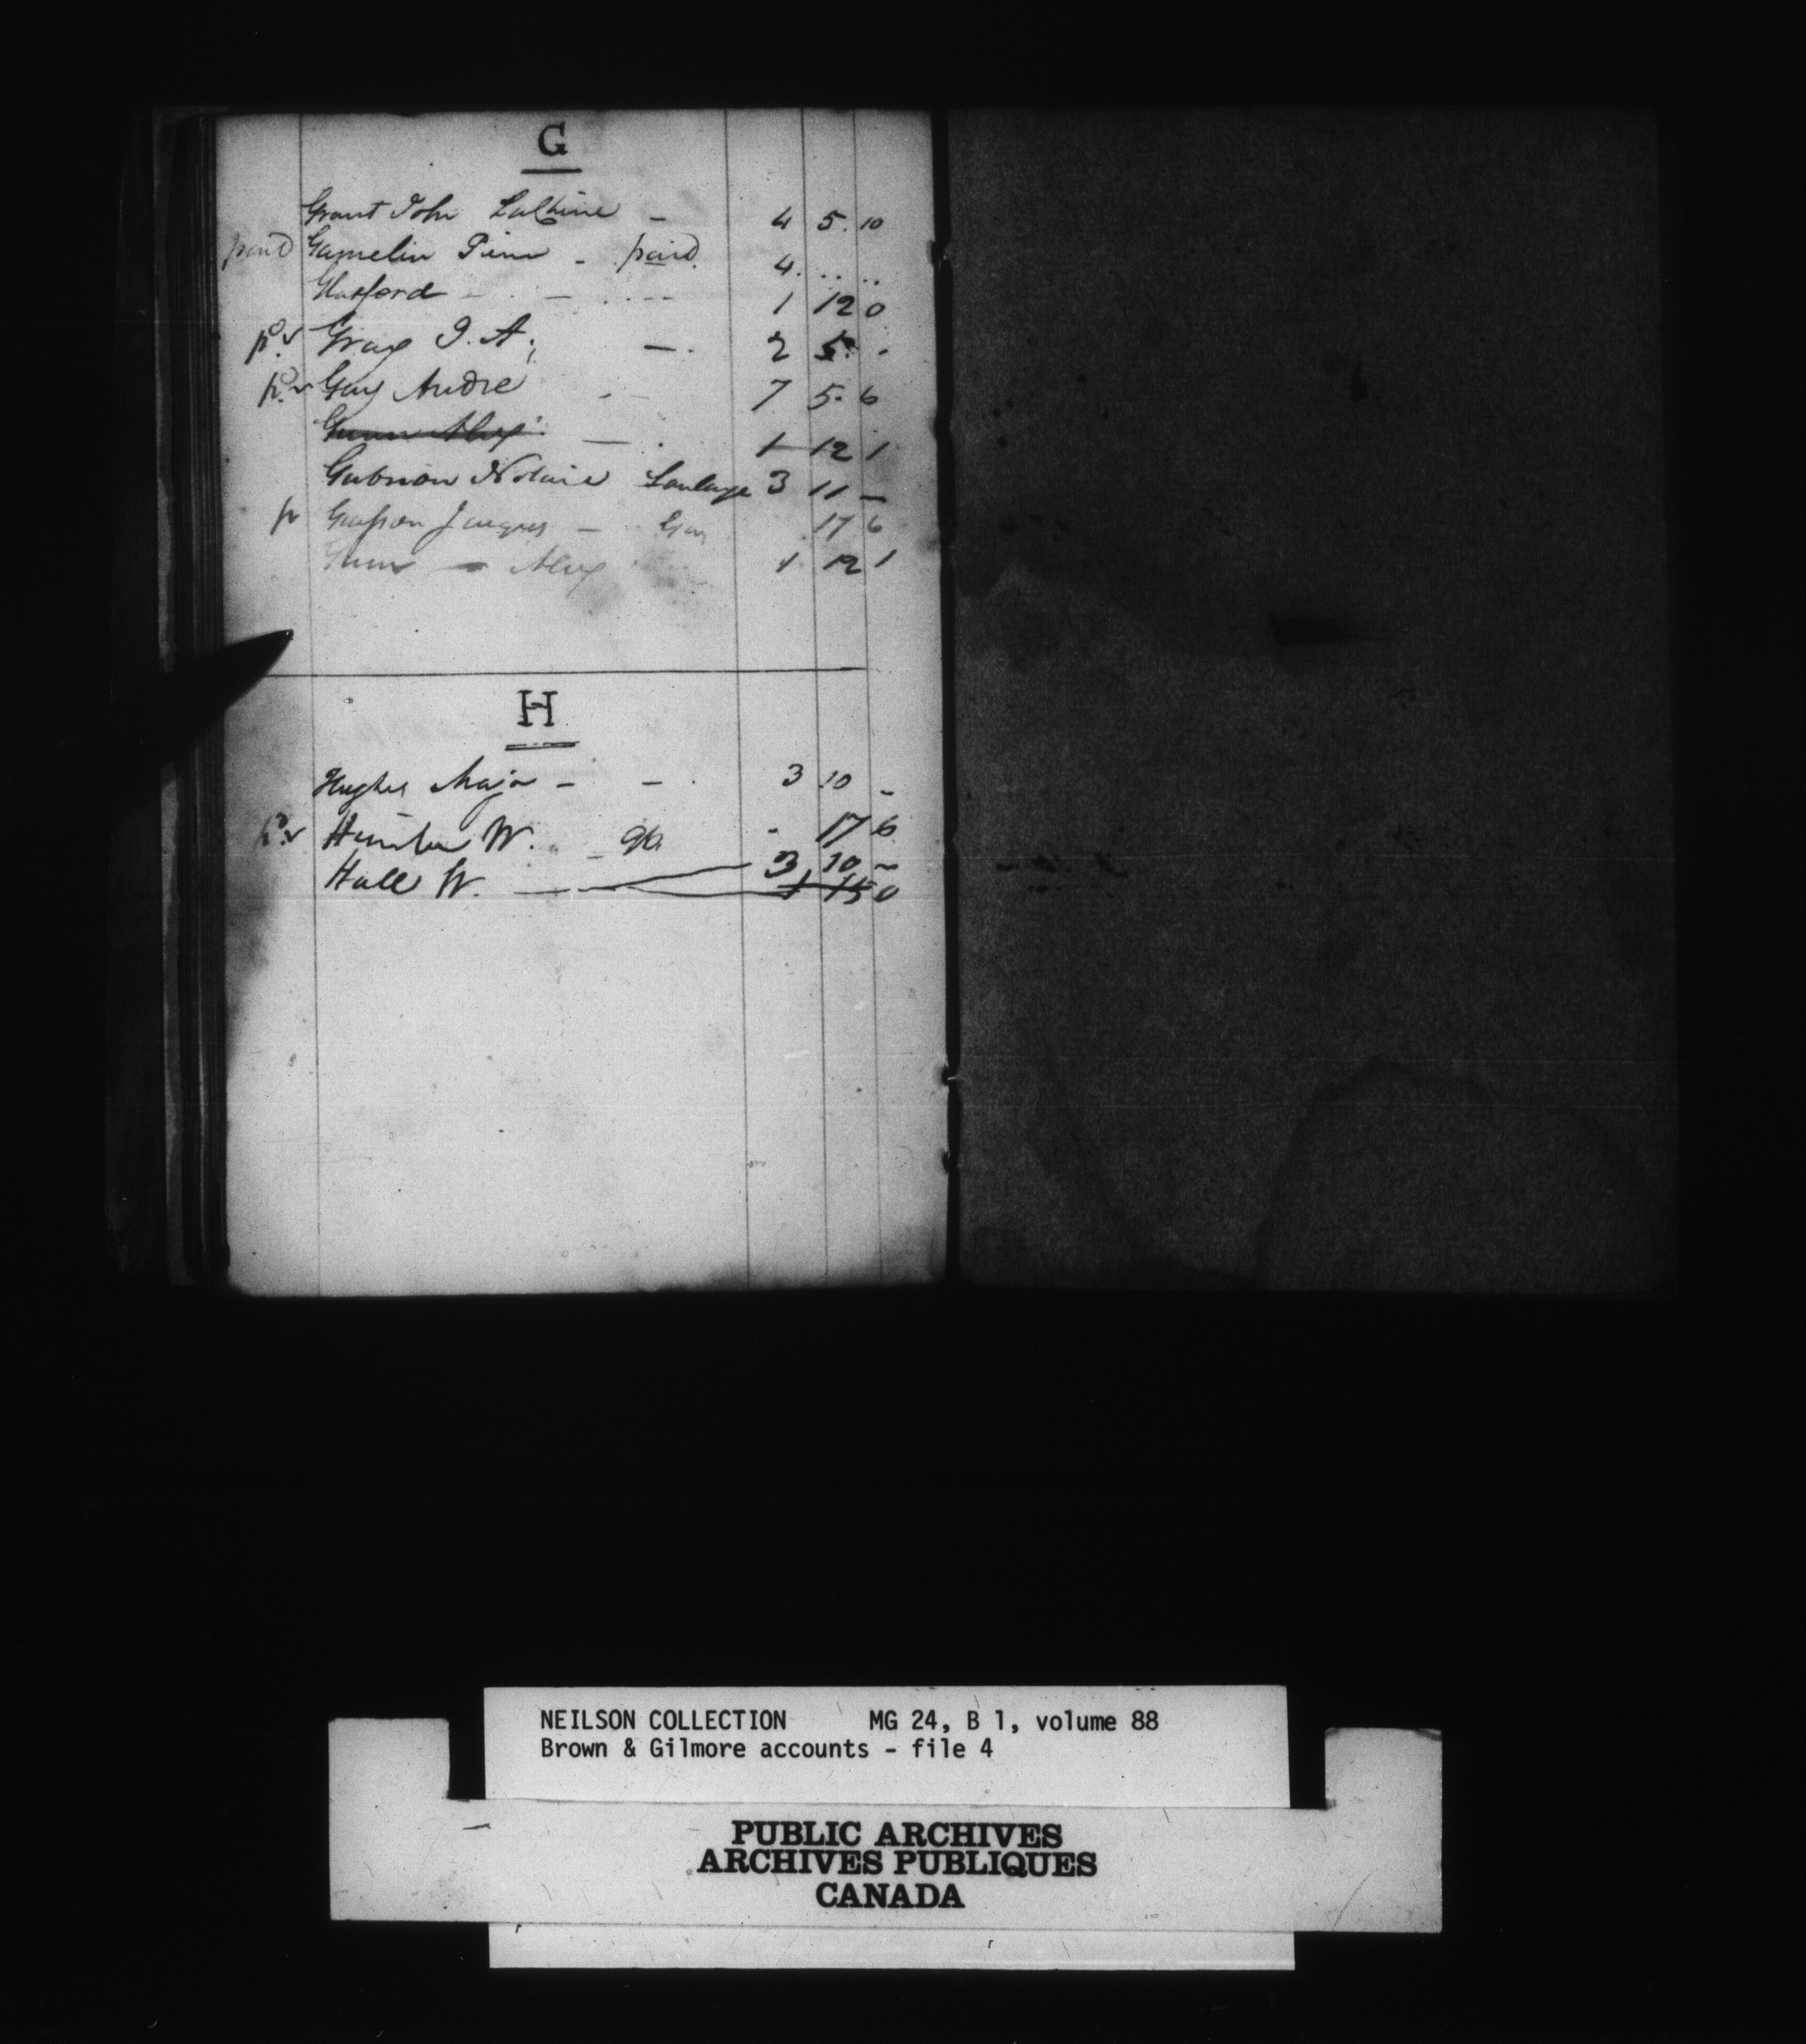 G
Grant John Lachine - 4 5. 10
paid Gamelin Pierre - paid 4. .. ..
Glasford - - 1 12 0
pd. v Gray J. A; - 2 5. -
pd. v Guy Andre - 7 5. 6
Gunn Alexr. - 1 12 1
Notaire 3 11 -
p Jacques - 17 6
Gunn - Alexr 1 12 1
H
Hughes Major - - 3 10 -
pd. v Hunter W. - - 17 6
Hall W. - 3 10 -
1 15 0
NEILSON COLLECTION MG 24, B 1, volume 88
Brown & Gilmore accounts - file 4
PUBLIC ARCHIVES
ARCHIVES PUBLIQUES
CANADA